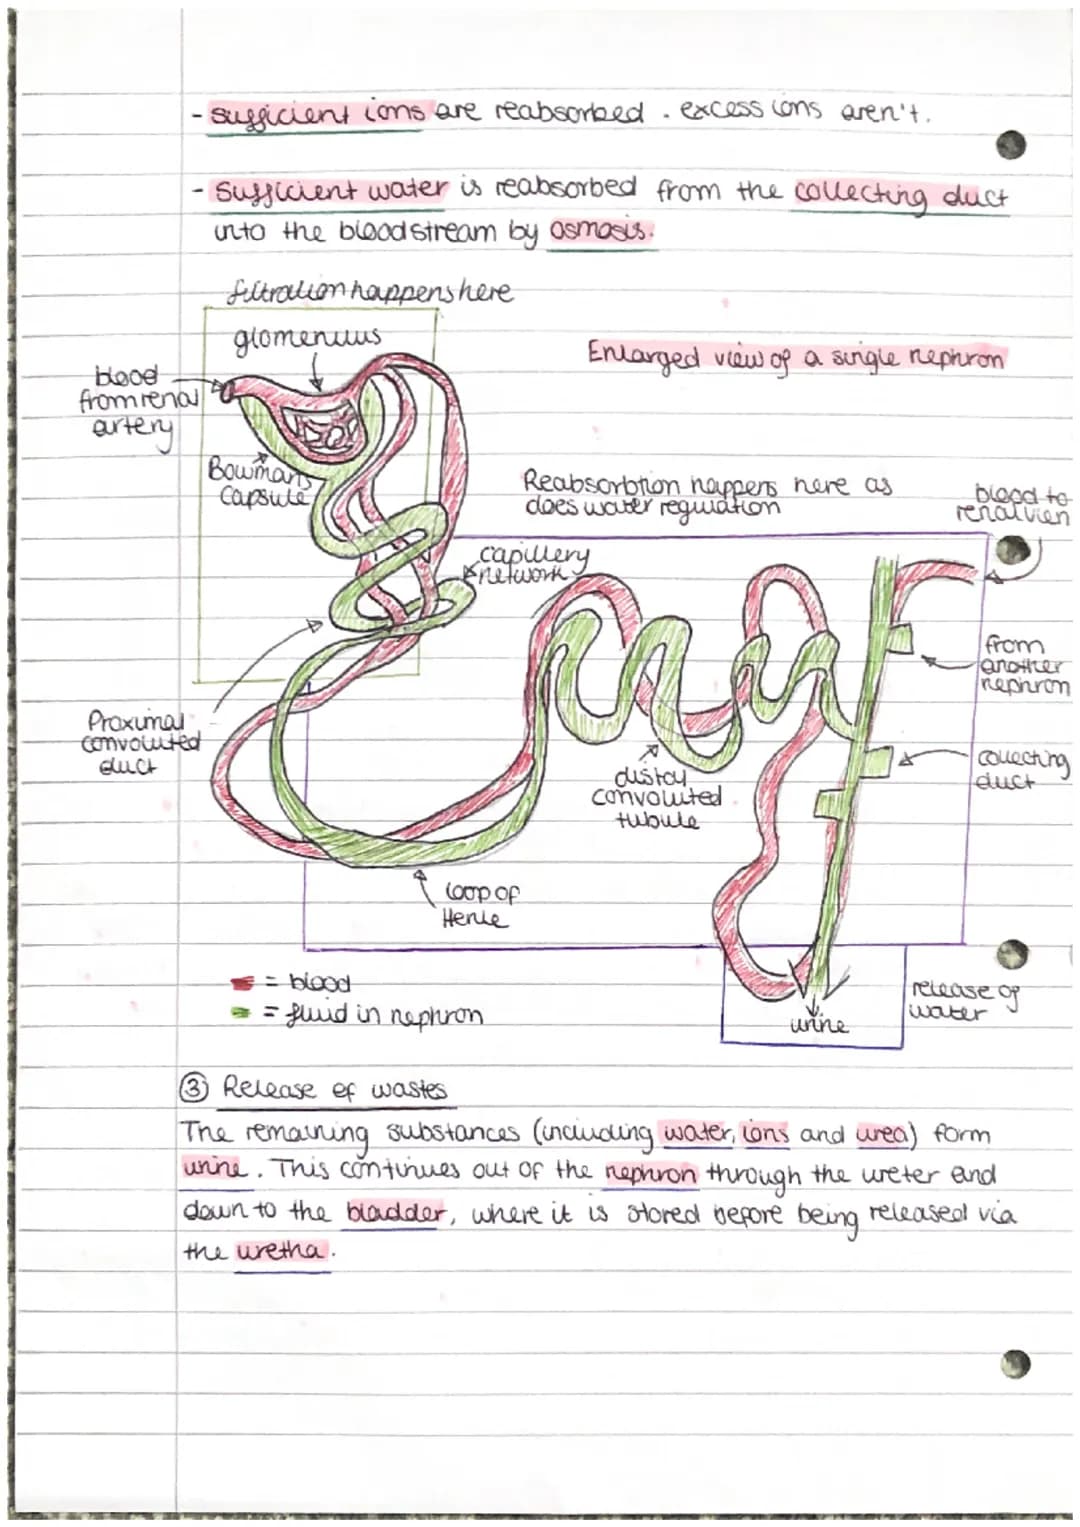 - sufficient ions are reabsorbed. excess ions aren't.
- sufficient water is reabsorbed from the collecting duct
into the bloodstream by osmosis.
filtration happens here
glomerulus
Enlarged view of a single nephron
blood
from renal
artery
Bowmans
Capsule
Reabsorbtion happens here as
does water regulation
blood to
renal vien
capillery
network
from
another
nephron
Proximal
convoluted
duct
collecting
duct
distal
convoluted
tubule
loop of
Henle
= blood
= fluid in nephron
release of
water
urine
③ Release of wastes
The remaining substances (including water, ions and urea) form
urine. This continues out of the nephron through the ureter and
down to the bladder, where it is stored before being released via
the uretha.